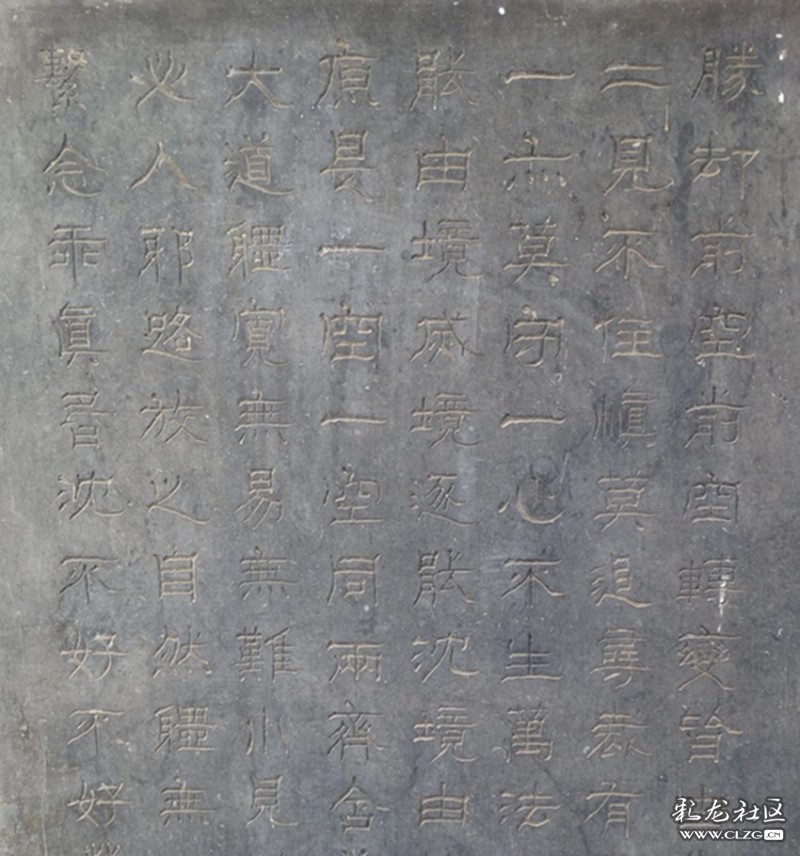 勝却前空前空轉變皆
二見不住慎莫追尋纔有
一亦莫守一心不生萬法
能由境滅境逐能沈境由
原是一空一空同兩齊含
大道體寬無易無難小見
必入邪路放之自然體無
繫念乖眞昏沈不好不好
彩龙社区
WWW.CLZG.CN